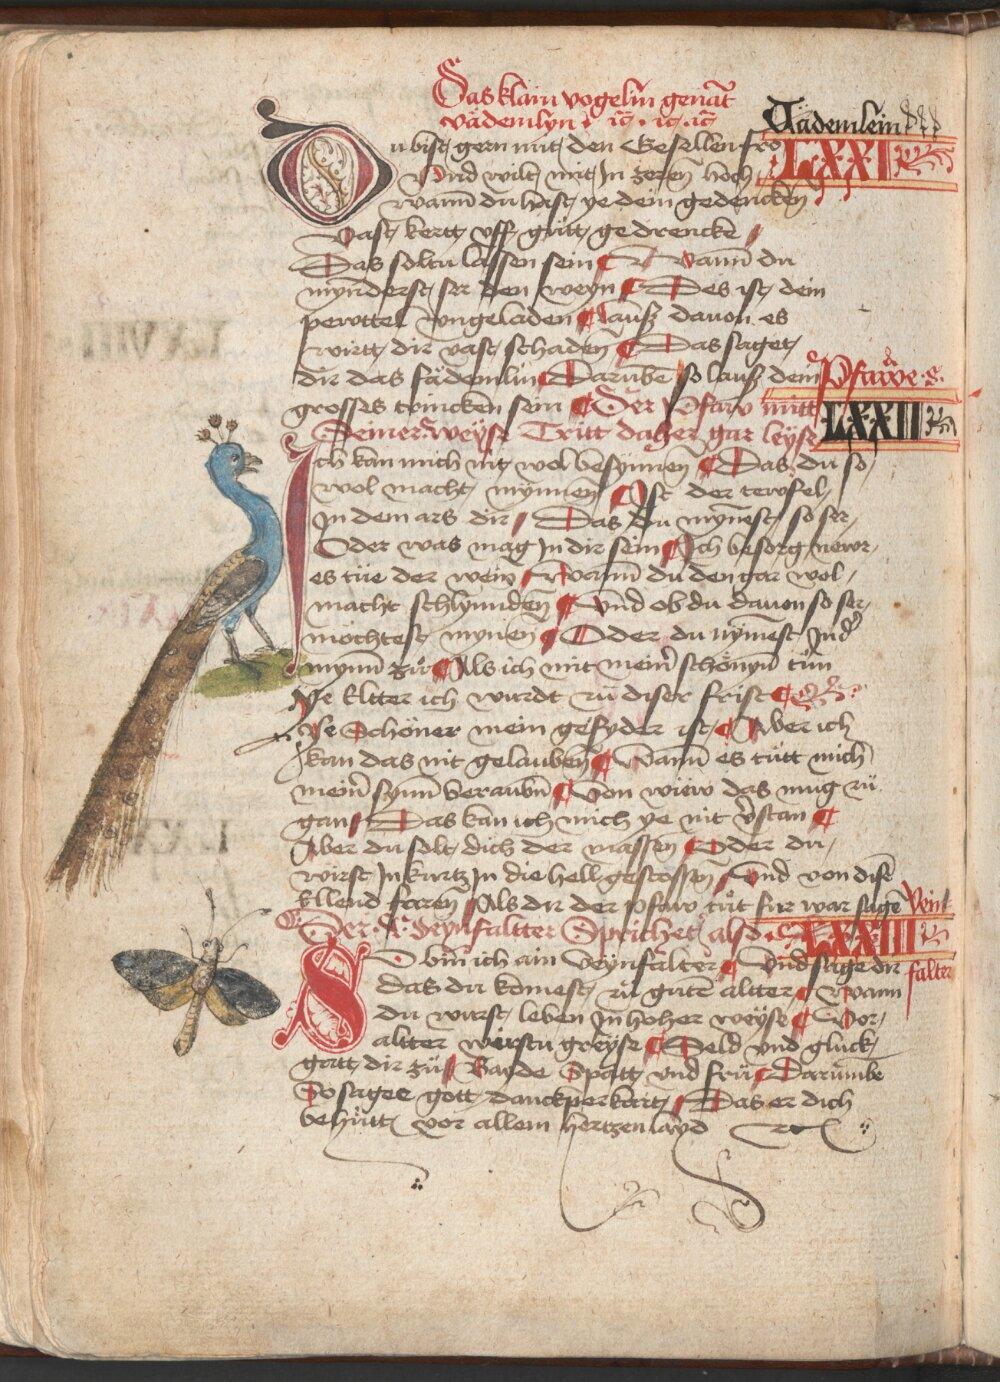 Das klain vogelin genāt
vädemlyn · ꝛc̄ · ꝛc̄ · ꝛc̄
Vädemlein
LXXI
Du bist gern mit den Gesellen fro
Vnd wilt mit In zeren hoch
wann du hast ye dein gedencken
Vast kertt vff gutt gedrencke
Das soltu lassen sein Wann du
mynderst ser den weyn Des ist dein
pewttel vngeladen Lausz dauon es
wirtt dir vast schaden Das saget
dir das fädemlin Darumbe so lausz dein
grosses trincken sein Der Pfaw mitt
Pfawe
LXXII
Seiner weyse Tritt daher gar leyse
Ich kan mich nit wol besynnen Das du so
wol macht mynnen Ist der tewfel
In dem ars dir Das du mynest so ser
Oder was mag In dir sein Ich besorg newr
es tüe der wein Wann du den gar wol
macht schlynnden Vnd ob du dauon so ser
möchtest mynen Oder du nymest Ind'
mynn zü Als ich mit mein' schönyn tün
Ye Eltter ich wurdt zü diser frist
Ye Schöner mein gefyder ist Aber ich
kan das nit gelauben Wann es tütt mich
mein' synn beraubn Von wiew das mug zü
gan Das kan ich mich ye nit v'stan
Aber du solt dich der massen Oder du
wirst In kurtz In die hell gestossen Vnd von dise
Ellend faren Als dir der pfaw tüt fur war sagē
Der Veynfaltter Sprichet also
Veint
LXXIII
falter
So bin ich ain Veynfalter Vnd sage dir
das du komest zü gutē altter Wann
du wirst leben In hoher weyse Vor
altter wirstu greyse Seld vnd gluck
gatt dir zü Bayde Spatt vnd frü Darumbe
So sagee gott danckperkait Das er dich
behütt vor allem hertzenlayd